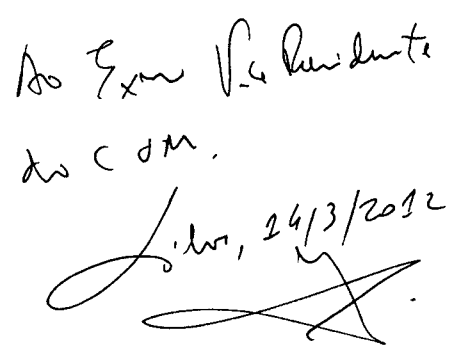 Ao Exmo Vice Presidente
do CSM.
14/3/2012